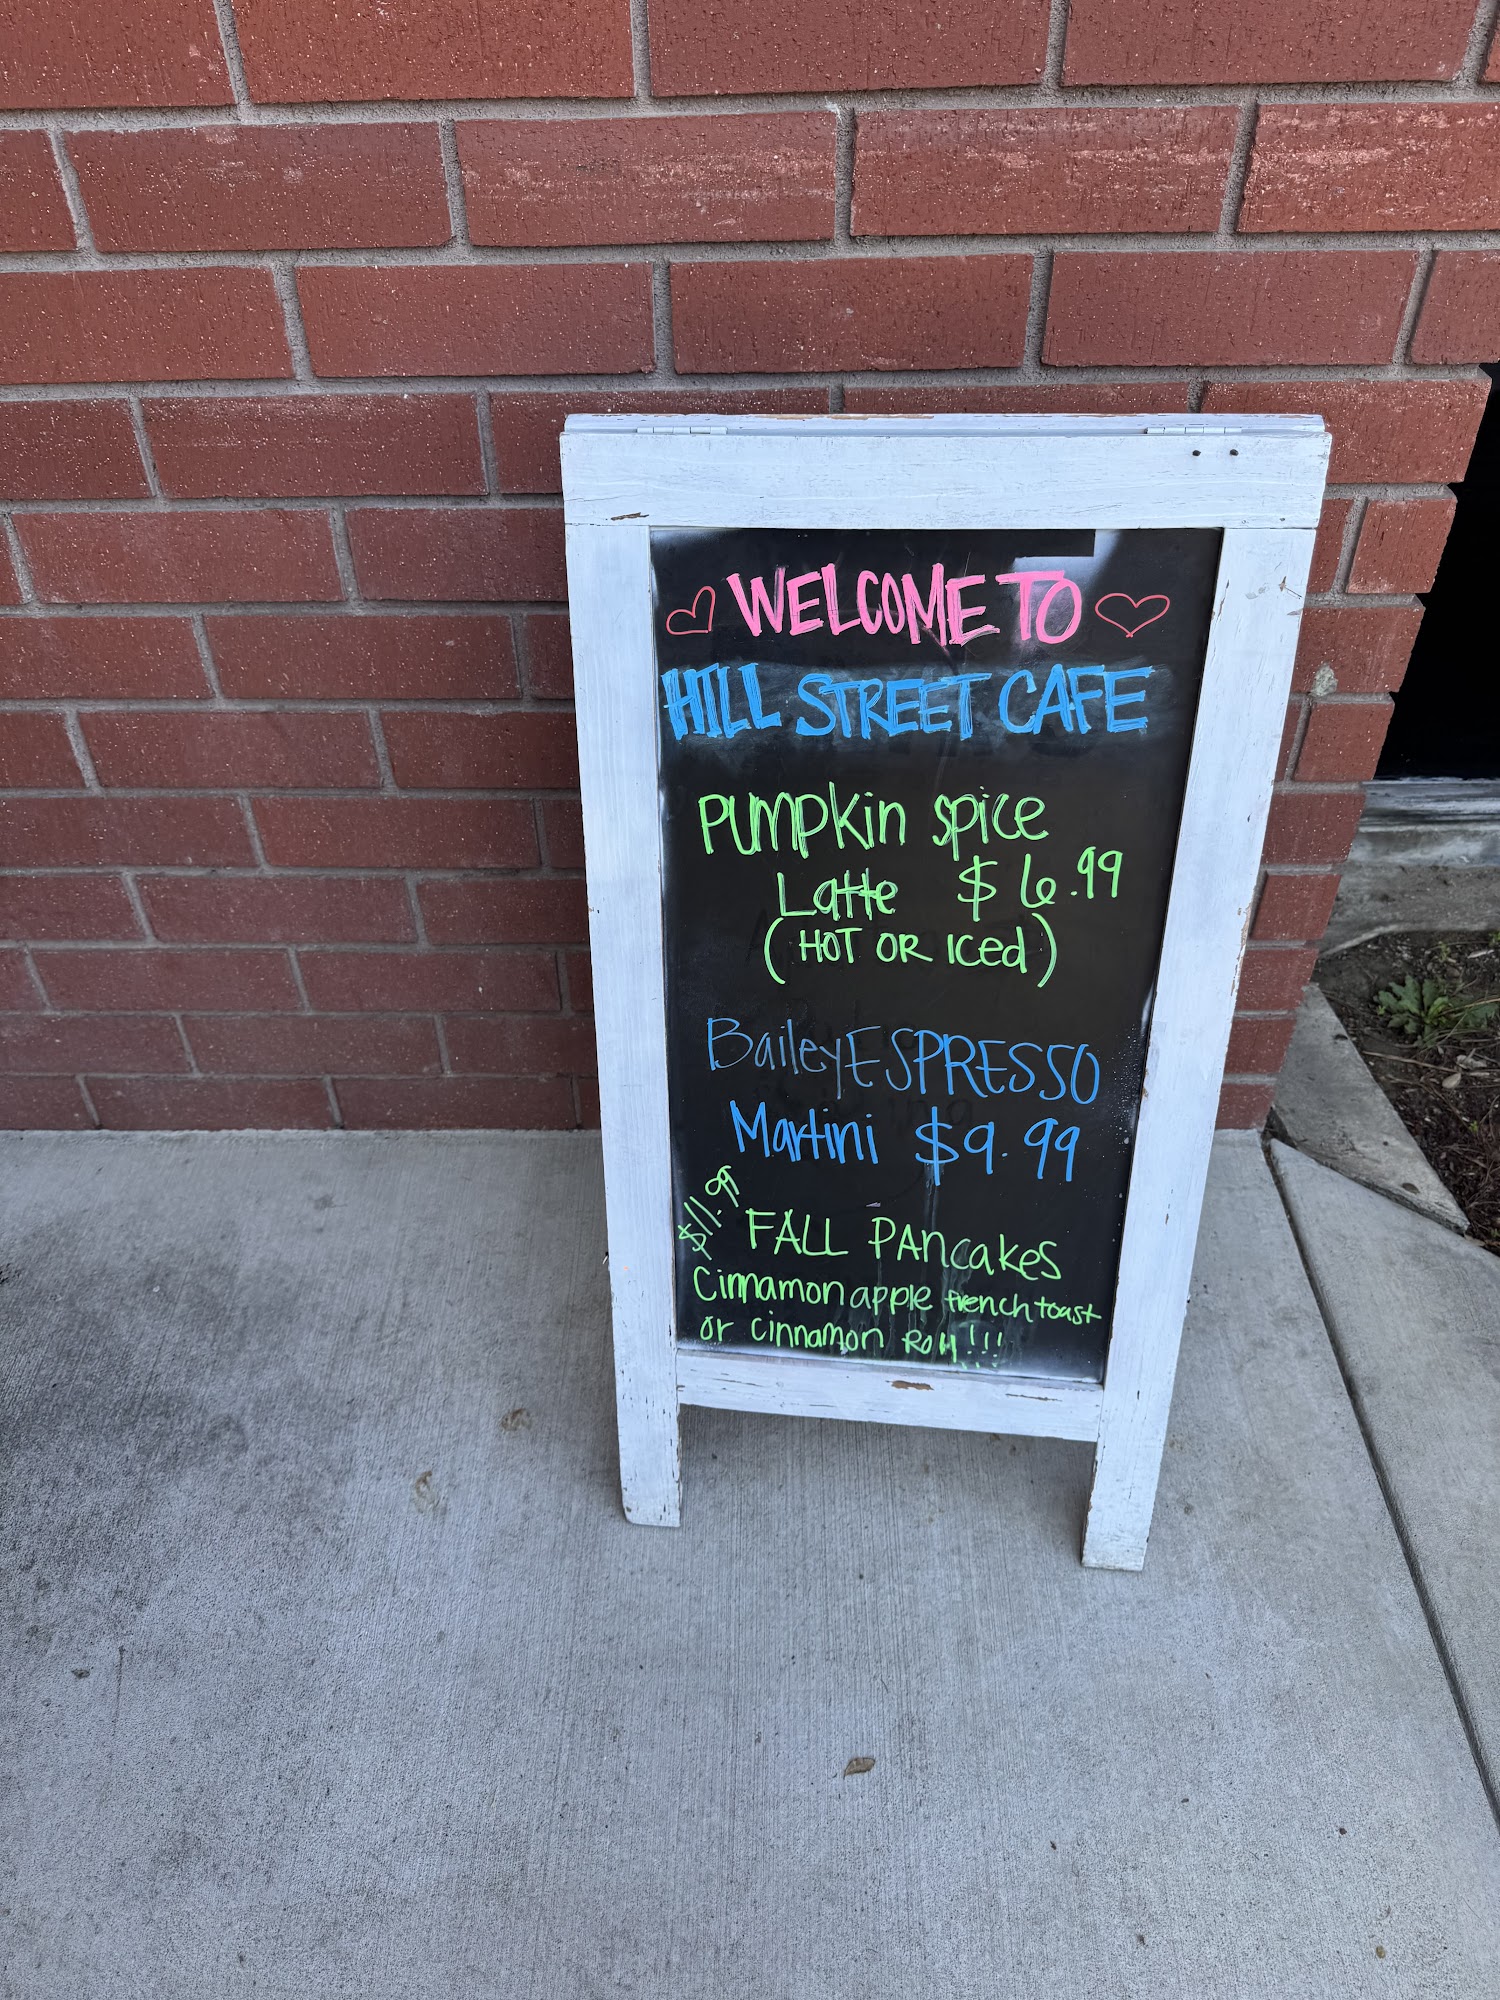 WELCOME TO
HILL STREET CAFE
Pumpkin spice
Latte $6.99
(HOT OR Iced)
BaileyESPRESSO
Martini $9.99
$11.99
FALL PANcakes
Cinnamon apple french toast
or cinnamon Roll!!!